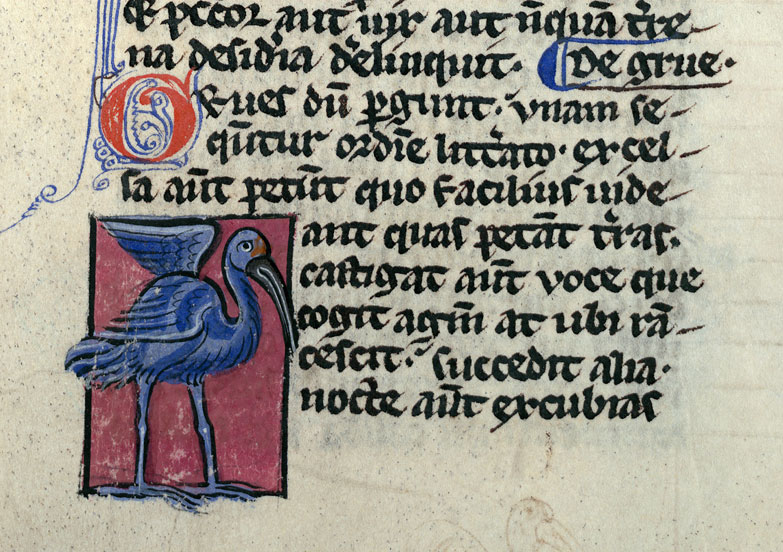 & peccor aut̄ uir aut nūquā t̾re-
na desid̾ia d̾elinquit. De grue.
GRues dū ꝑgunt. vnam se-
qūtur ordīe litt̾ato. excel-
sa aūt petūt quo facilius uide
ant quas petāt t̾ras.
castigat aūt voce que
cogit agm̄ at ubi rā-
cescit. succedit alia.
nocte aūt excubias